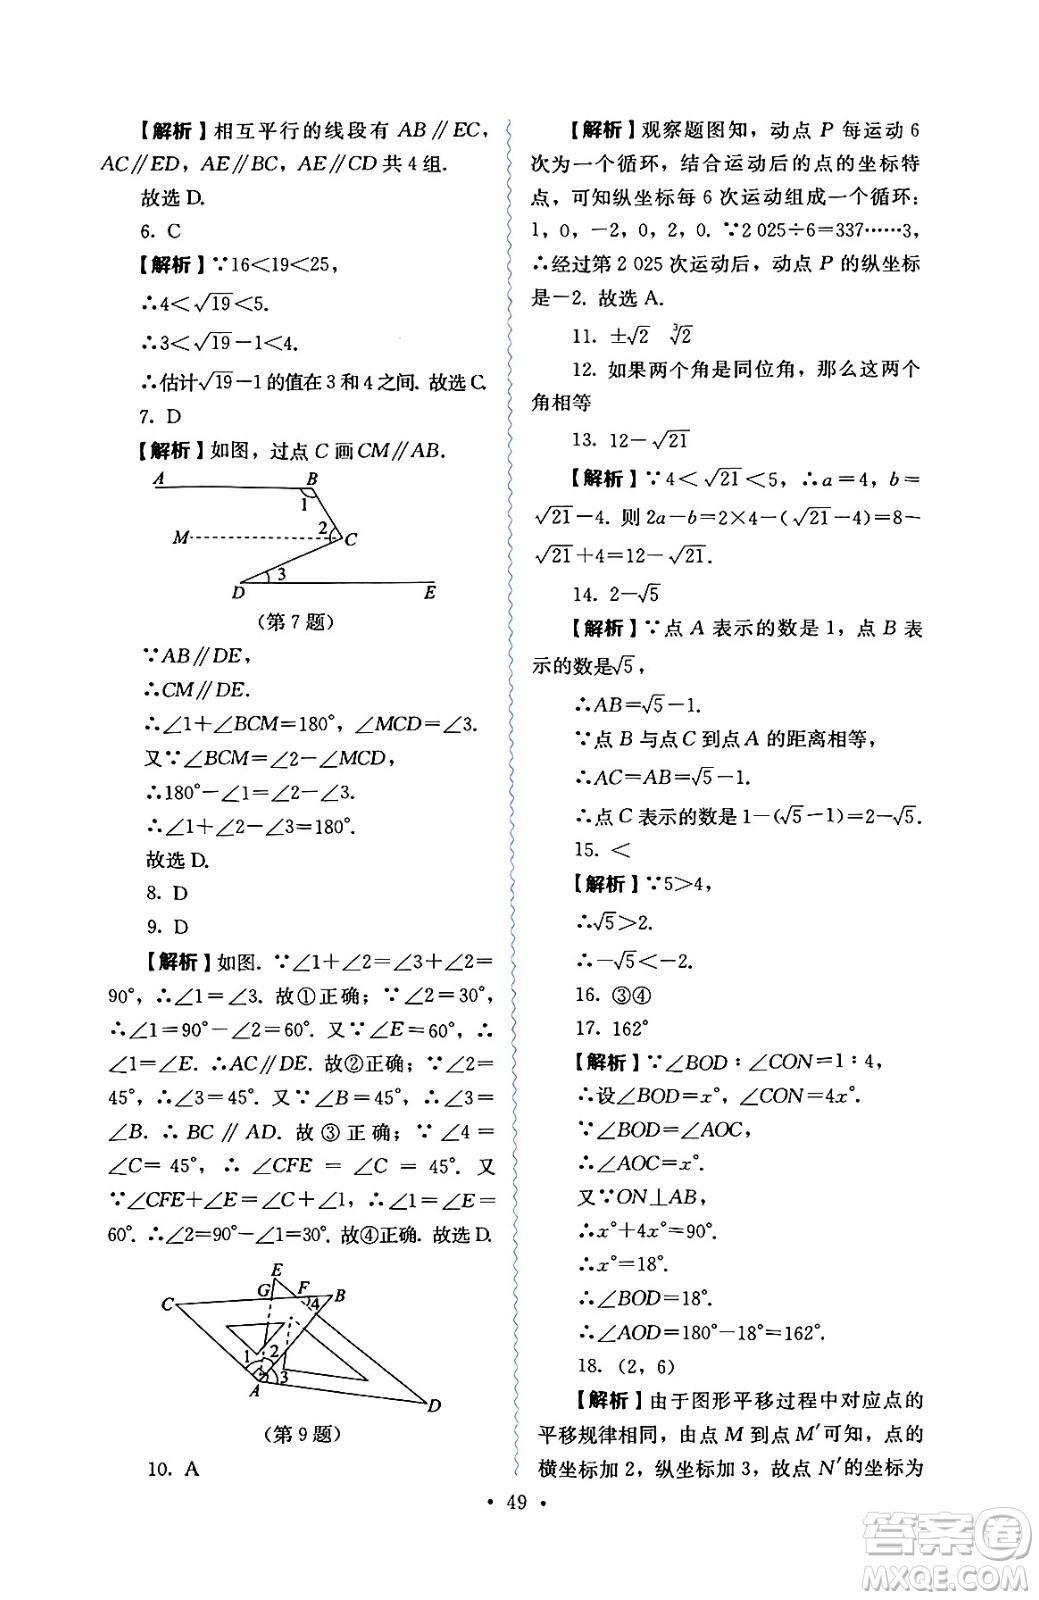 【解析】相互平行的线段有 AB∥EC,
AC∥ED, AE∥BC, AE∥CD 共 4 组.
故选 D.
6. C
【解析】∵16<19<25,
∴4<√19<5.
∴3<√19-1<4.
∴估计√19-1 的值在 3 和 4 之间. 故选 C.
7. D
【解析】如图，过点 C 画 CM∥AB.
A B
1
M 2 C
3
D E
(第 7 题)
∵AB∥DE,
∴CM∥DE.
∴∠1+∠BCM=180°, ∠MCD=∠3.
又∵∠BCM=∠2-∠MCD,
∴180°-∠1=∠2-∠3.
∴∠1+∠2-∠3=180°.
故选 D.
8. D
9. D
【解析】如图. ∵∠1+∠2=∠3+∠2=
90°, ∴∠1=∠3. 故①正确；∵∠2=30°,
∴∠1=90°-∠2=60°. 又∵∠E=60°, ∴
∠1=∠E. ∴AC∥DE. 故②正确；∵∠2=
45°, ∴∠3=45°. 又∵∠B=45°, ∴∠3=
∠B. ∴BC∥AD. 故③正确；∵∠4=
∠C=45°, ∴∠CFE=∠C=45°. 又
∵∠CFE+∠E=∠C+∠1, ∴∠1=∠E=
60°. ∴∠2=90°-∠1=30°. 故④正确. 故选 D.
E
G F
C 4 B
1 2
3
A
D
(第 9 题)
10. A
【解析】观察题图知，动点 P 每运动 6
次为一个循环，结合运动后的点的坐标特
点，可知纵坐标每 6 次运动组成一个循环：
1, 0, -2, 0, 2, 0. ∵2 025÷6=337……3,
∴经过第 2 025 次运动后，动点 P 的纵坐标
是-2. 故选 A.
11. ±√2 ∛2
12. 如果两个角是同位角，那么这两个
角相等
13. 12-√21
【解析】∵4<√21<5, ∴a=4, b=
√21-4. 则 2a-b=2×4-(√21-4)=8-
√21+4=12-√21.
14. 2-√5
【解析】∵点 A 表示的数是 1, 点 B 表
示的数是√5,
∴AB=√5-1.
∵点 B 与点 C 到点 A 的距离相等,
∴AC=AB=√5-1.
∴点 C 表示的数是 1-(√5-1)=2-√5.
15. <
【解析】∵5>4,
∴√5>2.
∴-√5<-2.
16. ③④
17. 162°
【解析】∵∠BOD∶∠CON=1∶4,
∴设∠BOD=x°, ∠CON=4x°.
∵∠BOD=∠AOC,
∴∠AOC=x°.
又∵ON⊥AB,
∴x°+4x°=90°.
∴x°=18°.
∴∠BOD=18°.
∴∠AOD=180°-18°=162°.
18. (2, 6)
【解析】由于图形平移过程中对应点的
平移规律相同，由点 M 到点 M′可知，点的
横坐标加 2, 纵坐标加 3, 故点 N′的坐标为
• 49 •
答案卷
MXQE.COM